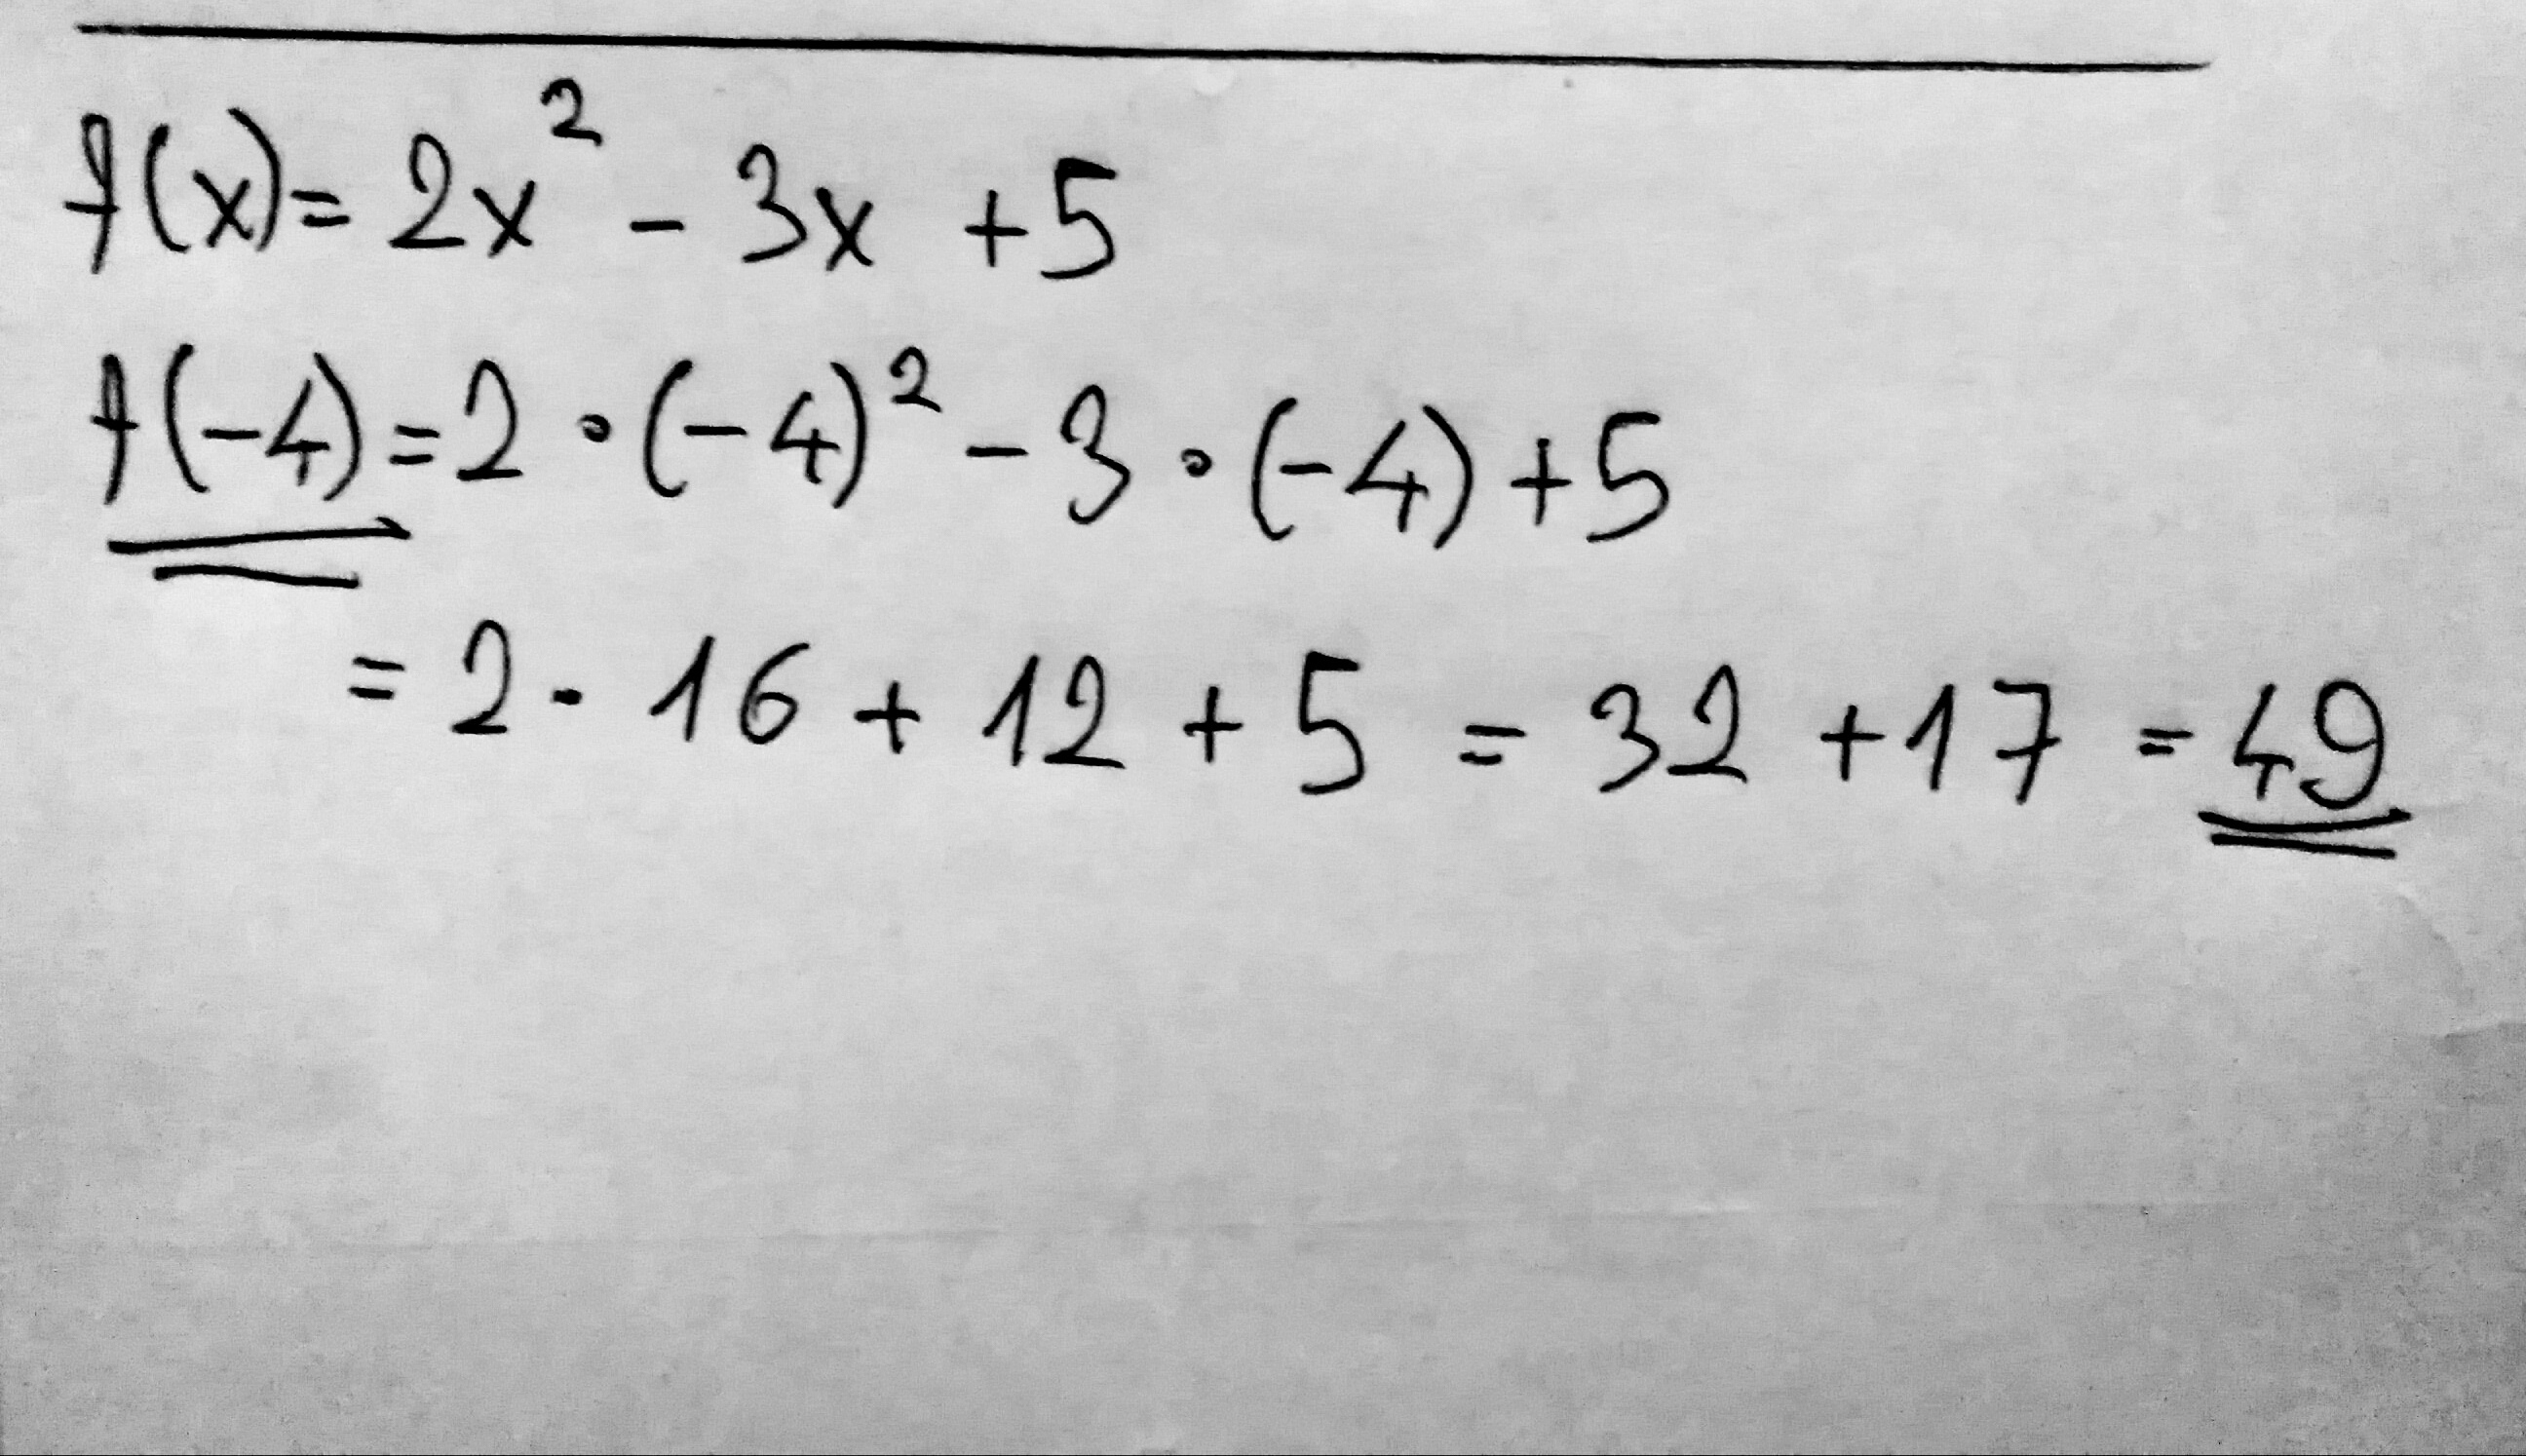 f(x)= 2x² - 3x +5
f(-4)=2 · (-4)² - 3 · (-4) +5
= 2 · 16 + 12 + 5 = 32 +17 = 49